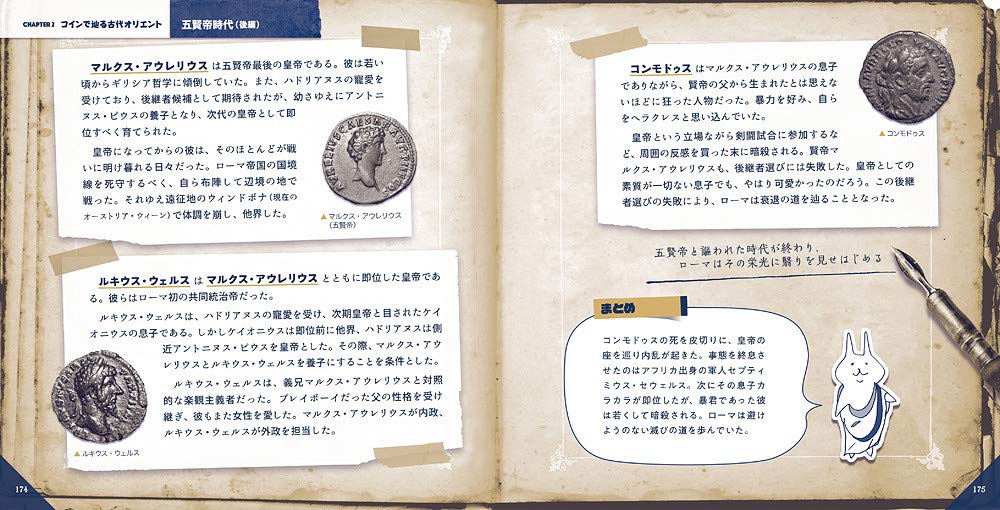 CHAPTER 2 コインで辿る古代オリエント
五賢帝時代(後編)
マルクス・アウレリウス は五賢帝最後の皇帝である。彼は若い
頃からギリシア哲学に傾倒していた。また、ハドリアヌスの寵愛を
受けており、後継者候補として期待されたが、幼さゆえにアントニ
ヌス・ピウスの養子となり、次代の皇帝として即
位すべく育てられた。
皇帝になってからの彼は、そのほとんどが戦
いに明け暮れる日々だった。ローマ帝国の国境
線を死守するべく、自ら布陣して辺境の地で
戦った。それゆえ遠征地のウィンドボナ(現在の
オーストリア・ウィーン)で体調を崩し、他界した。
▲マルクス・アウレリウス
(五賢帝)
ルキウス・ウェルス は マルクス・アウレリウス とともに即位した皇帝であ
る。彼らはローマ初の共同統治帝だった。
ルキウス・ウェルスは、ハドリアヌスの寵愛を受け、次期皇帝と目されたケイ
オニウスの息子である。しかしケイオニウスは即位前に他界、ハドリアヌスは側
近アントニヌス・ピウスを皇帝とした。その際、マルクス・アウ
レリウスとルキウス・ウェルスを養子にすることを条件とした。
ルキウス・ウェルスは、義兄マルクス・アウレリウスと対照
的な楽観主義者だった。プレイボーイだった父の性格を受け
継ぎ、彼もまた女性を愛した。マルクス・アウレリウスが内政、
ルキウス・ウェルスが外政を担当した。
▲ルキウス・ウェルス
174
コンモドゥス はマルクス・アウレリウスの息子
でありながら、賢帝の父から生まれたとは思えな
いほどに狂った人物だった。暴力を好み、自ら
をヘラクレスと思い込んでいた。
皇帝という立場ながら剣闘試合に参加するな
ど、周囲の反感を買った末に暗殺される。賢帝マ
ルクス・アウレリウスも、後継者選びには失敗した。皇帝としての
素質が一切ない息子でも、やはり可愛かったのだろう。この後継
者選びの失敗により、ローマは衰退の道を辿ることとなった。
▲コンモドゥス
五賢帝と謳われた時代が終わり、
ローマはその栄光に翳りを見せはじめる
まとめ
コンモドゥスの死を皮切りに、皇帝の
座を巡り内乱が起きた。事態を終息さ
せたのはアフリカ出身の軍人セプティ
ミウス・セウェルス。次にその息子カ
ラカラが即位したが、暴君であった彼
は若くして暗殺される。ローマは避け
ようのない滅びの道を歩んでいた。
175